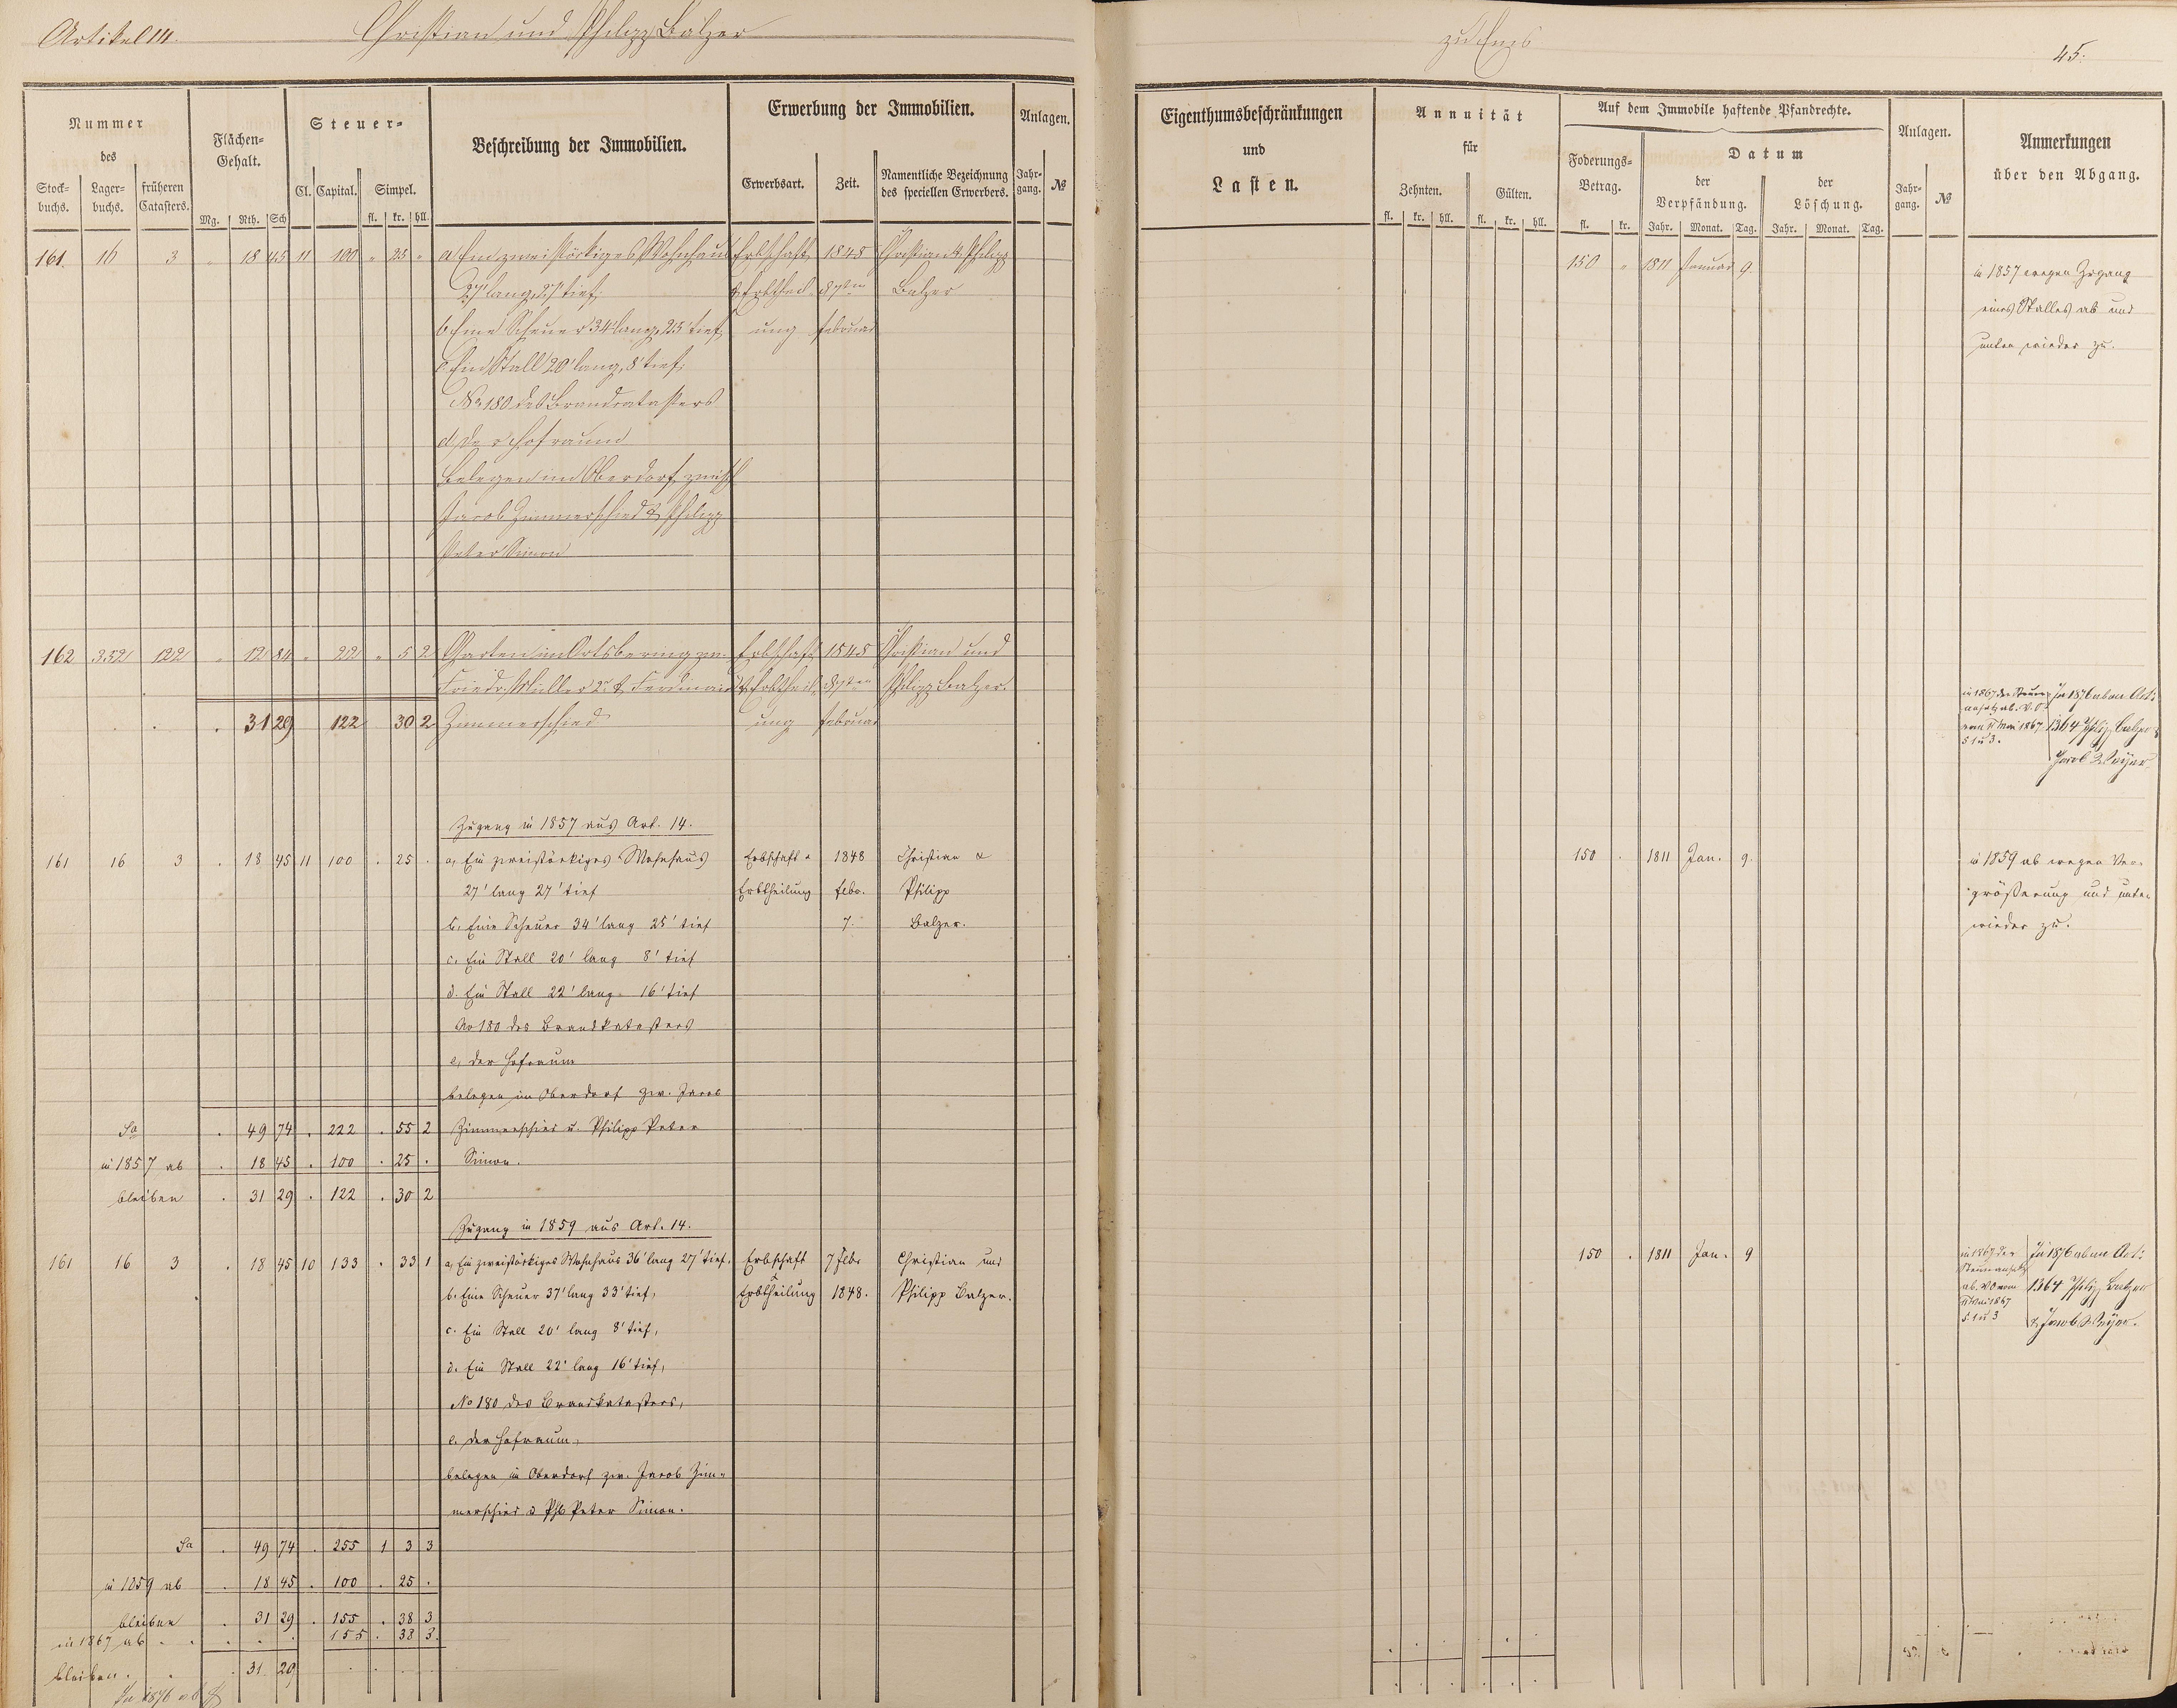 Artikel 14.
Christian und Philipp Balzer
zu Ems
45.
Nummer
des
Stock-
buchs.
Lager-
buchs.
früheren
Catasters.
Flächen-
Gehalt.
Mg. Rth. Sch
Steuer-
Cl. Capital. Simpel.
fl. kr. hll.
Beschreibung der Immobilien.
Erwerbung der Immobilien.
Erwerbsart. Zeit.
Namentliche Bezeichnung
des speciellen Erwerbers.
Anlagen.
Jahr-
gang.
№
Eigenthumsbeschränkungen
und
Lasten.
Annuität
für
Zehnten. Gülten.
fl. kr. hll. fl. kr. hll.
Auf dem Immobile haftende Pfandrechte.
Foderungs-
Betrag.
fl. kr.
Datum
der
Verpfändung.
Jahr. Monat. Tag.
der
Löschung.
Jahr. Monat. Tag.
Anlagen.
Jahr-
gang.
№
Anmerkungen
über den Abgang.
161 16 3 " 18 45 11 100 " 25 " a, Ein zweistöckiges Wohnhaus Erbschaft 1848 Christian & Philipp 150 " 1811 Januar 9. in 1857 wegen Zugang
27' lang, 27' tief, & Erbtheil- d 7ten Balzer eines Stalles ab und
b, Eine Scheuer 34' lang, 25' tief, ung Februar unten wieder zu.
c, Ein Stall 20' lang, 8' tief,
No 180 des Brandcatasters
d, der Hofraum
Belegen im Oberdorf, zwisch
Jacob Zimmerschied & Philipp
Peter Simon
162 352 122 " 12 84 " 22 " 5 2 Garten im Ortsbering zw. Erbschaft 1848 Christian und
Friedr. Müller 2r & Ferdinand & Erbtheil- d 7ten Philipp Balzer.
. 31 29 122 30 2 Zimmerschied ung Februar
in 1867 der Steuer-
ansatz ab. V.O.
vom 11 Mai 1867.
§ 1 u 3.
In 1876 ab an Art:
1364 Philipp Balzer &
Jacob
Zugang in 1857 aus Art. 14.
161 16 3 . 18 45 11 100 . 25 . a, Ein zweistöckiges Wohnhaus Erbschaft & 1848 Christian & 150 . 1811 Jan. 9. in 1859 ab wegen Ver-
27' lang 27' tief Erbtheilung Febr. Philipp größerung und unten
b, Eine Scheuer 34' lang 25' tief 7. Balzer. wieder zu.
c. Ein Stall 20' lang 8' tief
d. Ein Stall 22' lang 16' tief
No 180 des Brandkatasters
e, der Hofraum
belegen im Oberdorf zw. Jacob
Sa . 49 74 . 222 . 55 2 Zimmerschied u. Philipp Peter
in 1857 ab . 18 45 . 100 . 25 . Simon.
bleiben . 31 29 . 122 . 30 2
Zugang in 1859 aus Art. 14.
161 16 3 . 18 45 10 133 . 33 1 a, Ein zweistöckiges Wohnhaus 36' lang 27' tief. Erbschaft 7 Febr Christian und 150 . 1811 Jan. 9
b. Eine Scheuer 37' lang 33' tief, & Erbtheilung 1848. Philipp Balzer.
in 1867 der
Steueransatz
ab. VO vom
11 Mai 1867
§ 1 u 3
In 1876 ab an Art:
1364 Philipp Balzer
& Jacob
c. Ein Stall 20' lang 8' tief,
d. Ein Stall 22' lang 16' tief,
No 180 des Brandkatasters,
e. der Hofraum,
belegen in Oberdorf zw. Jacob Zim-
merschied & Ph. Peter Simon.
Sa . 49 74 . 255 1 3 3
in 1859 ab . 18 45 . 100 . 25 .
bleiben . 31 29 . 155 . 38 3
in 1867 ab . . . . . 155 . 38 3.
bleiben . . . 31 29 . . .
In 1876 ab